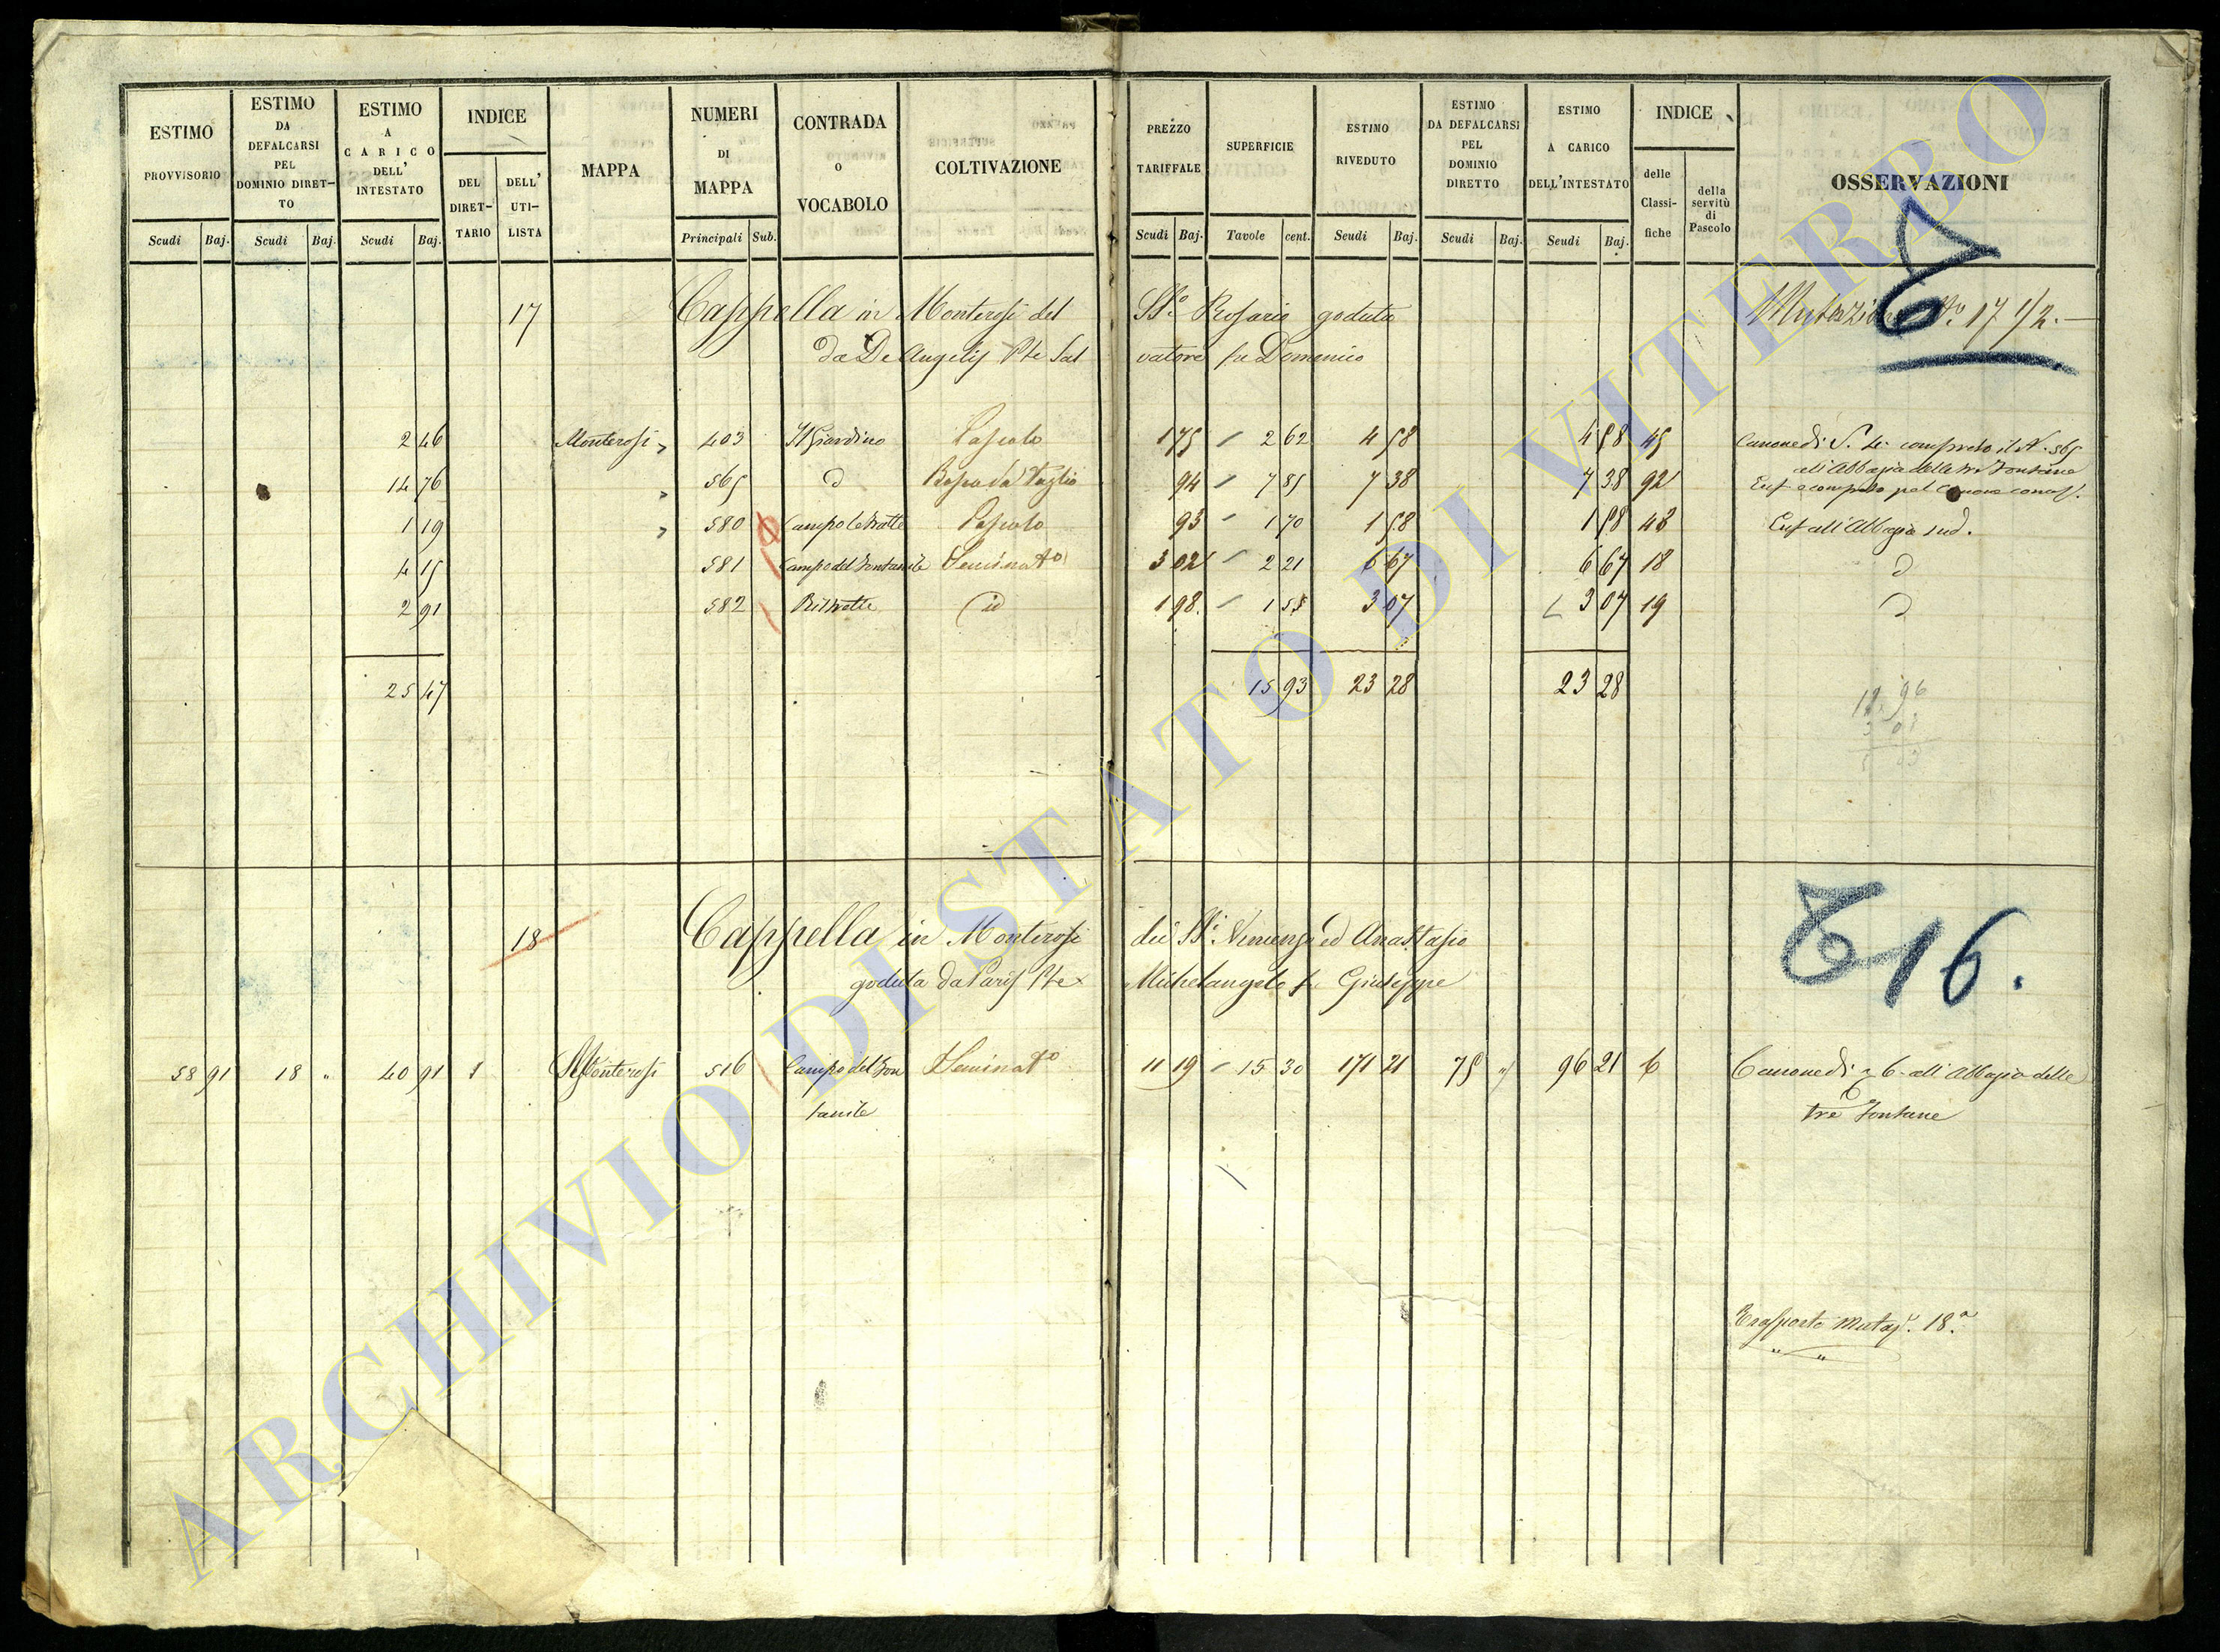 ESTIMO PROVVISORIO | ESTIMO DA DEFALCARSI PEL DOMINIO DIRETTO | ESTIMO A CARICO DELL' INTESTATO | INDICE | MAPPA | NUMERI DI MAPPA | CONTRADA O VOCABOLO | COLTIVAZIONE | PREZZO TARIFFALE | SUPERFICIE | ESTIMO RIVEDUTO | ESTIMO DA DEFALCARSI PEL DOMINIO DIRETTO | ESTIMO A CARICO DELL'INTESTATO | INDICE | OSSERVAZIONI
DEL DIRET-TARIO | DELL' UTI-LISTA | delle Classi-fiche | della servitù di Pascolo
Scudi | Baj. | Scudi | Baj. | Scudi | Baj. | Principali | Sub. | Scudi | Baj. | Tavole | cent. | Scudi | Baj. | Scudi | Baj. | Scudi | Baj.
17 Cappella in Monterosi del SS.o Rosario goduta Mutazione N.o 17 1/2.
da De Angelis Pte Sal vatore fu Domenico
2 46 Monterosi 403 Il Giardino Pascolo 1 75 2 62 4 58 4 58 45 Canone di S. 4: compreso il N. 565
all'Abbazia delle tre Fontane
14 76 565 d Bosco da Taglio 94 7 85 7 38 7 38 92
1 19 580 Campo le Grotte Pascolo 93 1 70 1 58 1 58 43 Enf all'Abbazia sud.
4 15 581 Campo del Fontanile Seminato 3 02 2 21 6 67 6 67 18 d
2 91 582 id 1 98 1 55 3 07 3 07 19 d
25 47 15 93 23 28 23 28
18 Cappella in Monterosi dei SS.i Vincenzo ed Anastasio
goduta da Paris Pte Michelangelo fu Giuseppe
16.
58 91 18 " 40 91 1 Monterosi 516 Campo del Fon Seminato 11 19 15 30 171 21 75 " 96 21 6 Canone di 6 all'Abbazia delle
tanile tre Fontane
Trasporto Mutaz. 18.a
ARCHIVIO DI STATO DI VITERBO